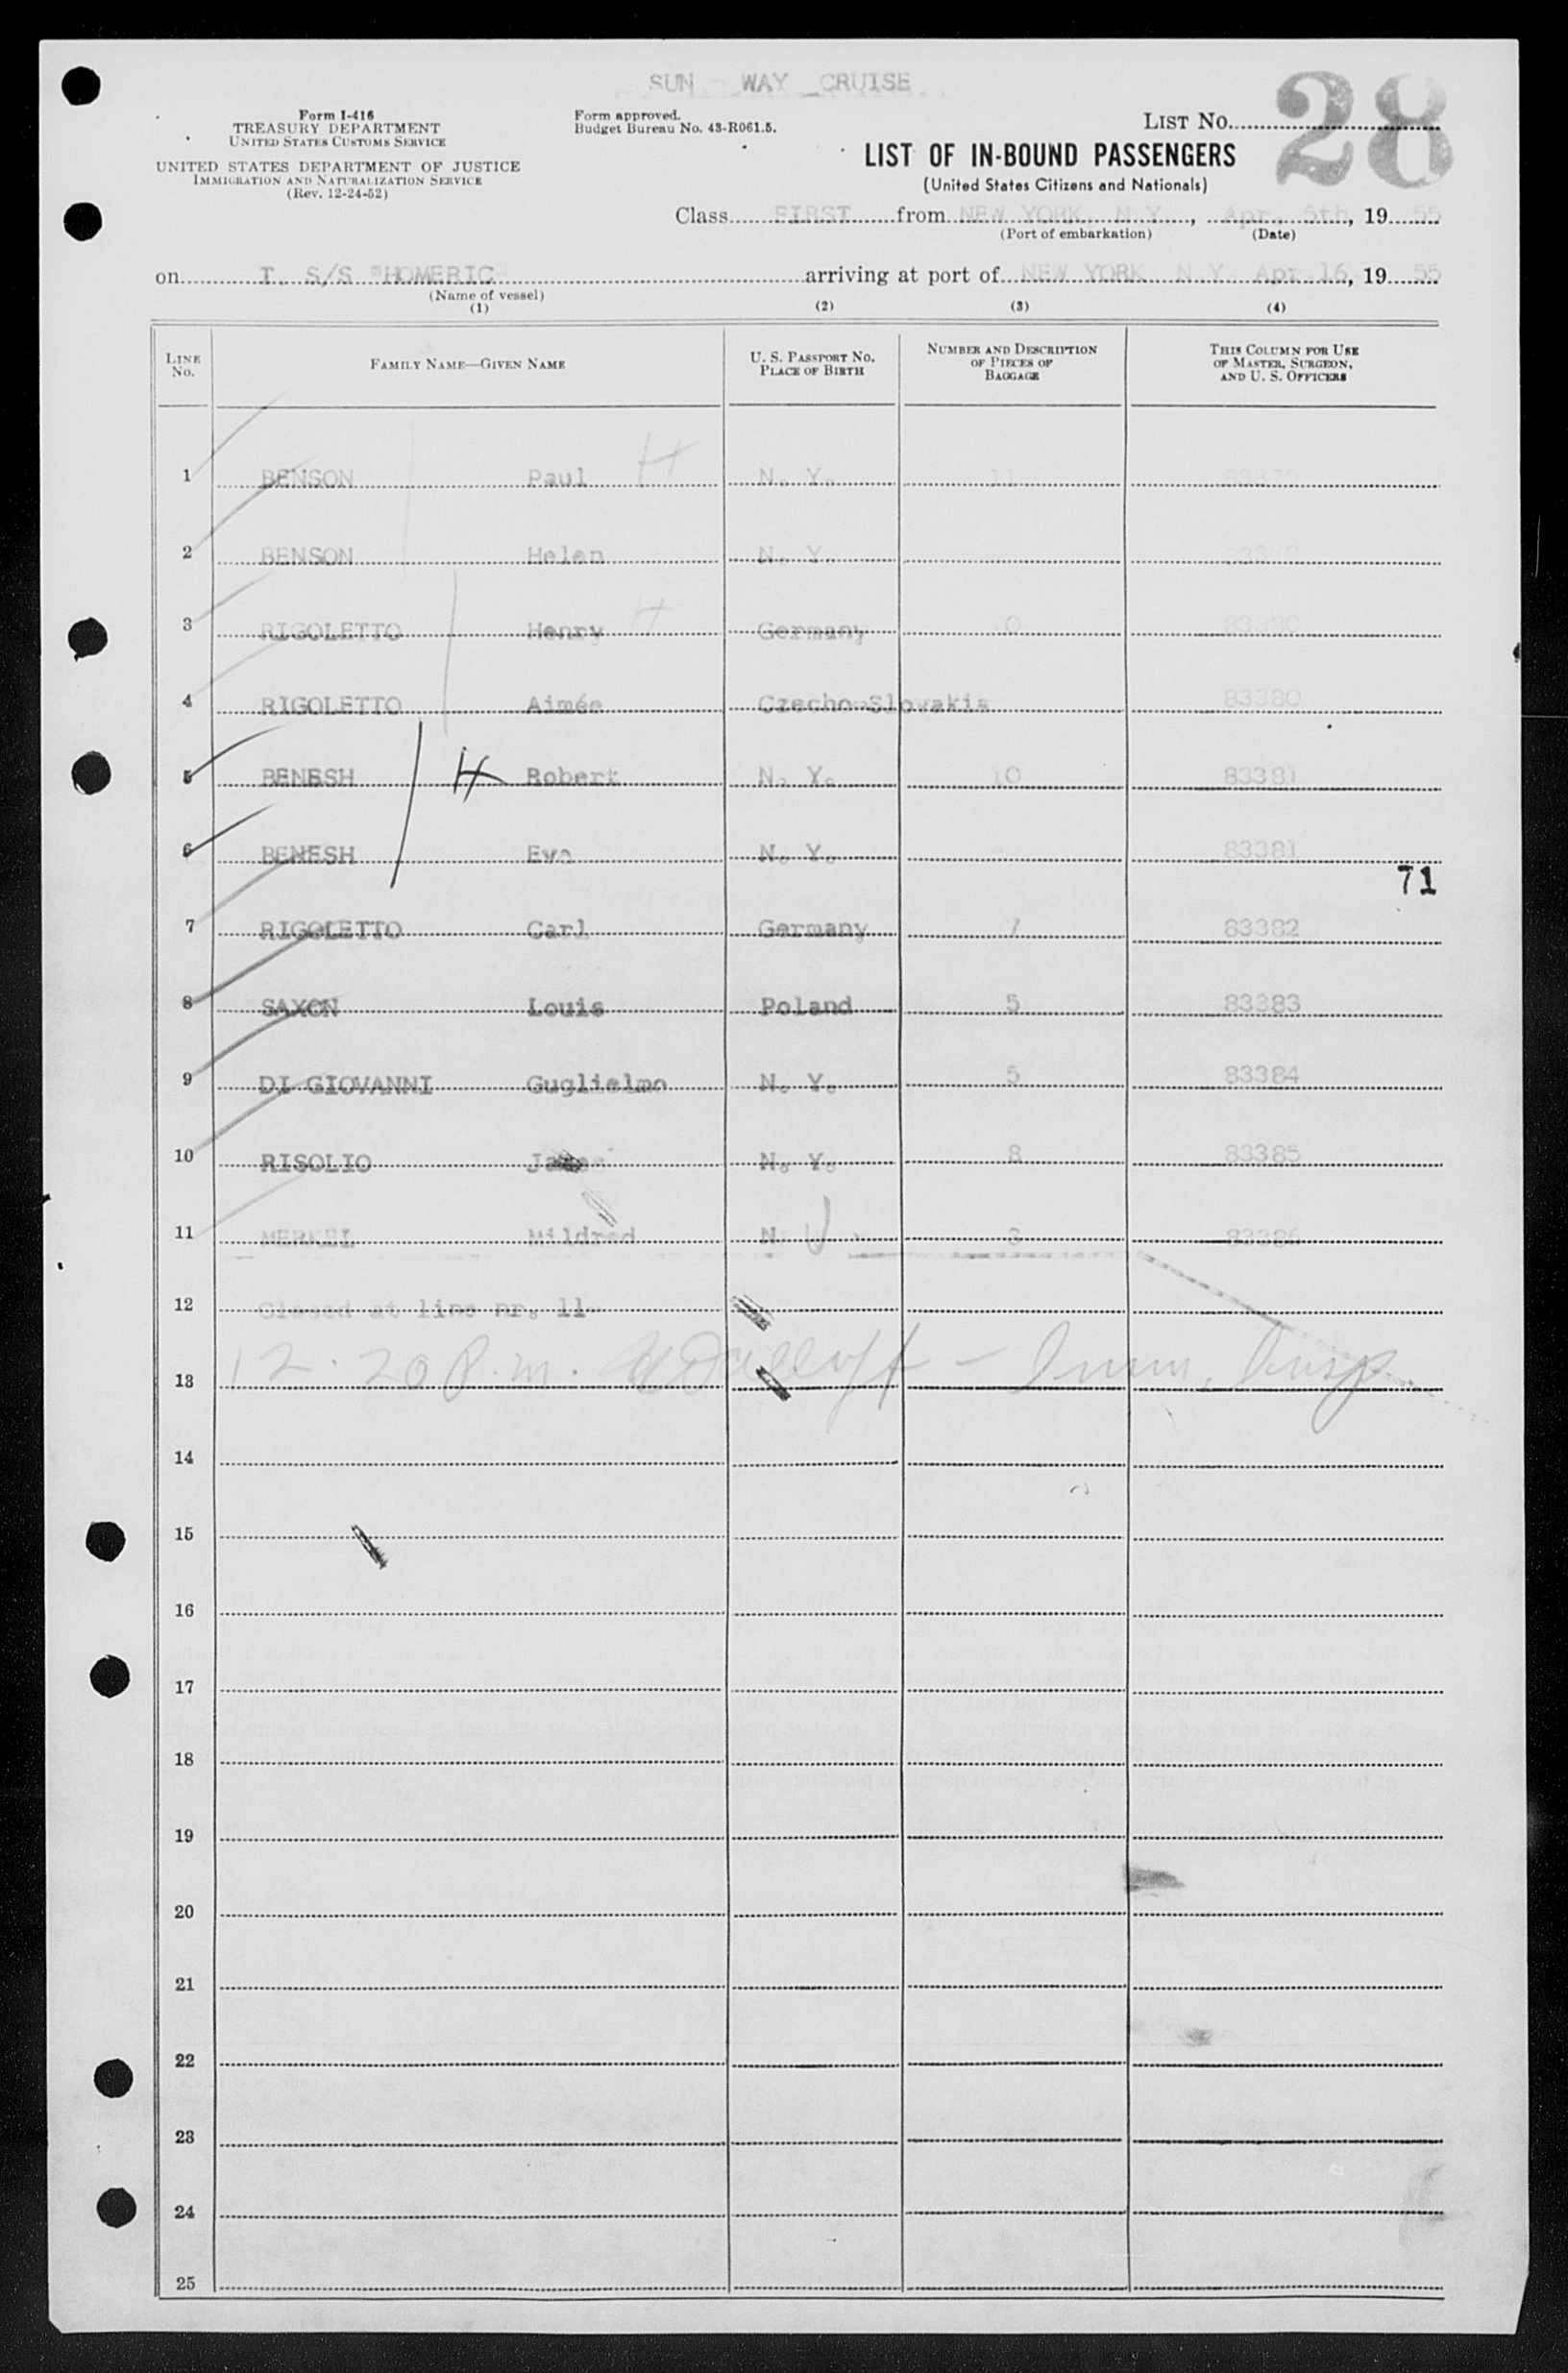 SUN - WAY CRUISE
28
Form I-416
TREASURY DEPARTMENT
UNITED STATES CUSTOMS SERVICE
Form approved.
Budget Bureau No. 43-R061.5.
LIST NO.
UNITED STATES DEPARTMENT OF JUSTICE
IMMIGRATION AND NATURALIZATION SERVICE
(Rev. 12-24-52)
LIST OF IN-BOUND PASSENGERS
(United States Citizens and Nationals)
Class FIRST from NEW YORK, N.Y., Apr. 5th, 19 55
(Port of embarkation) (Date)
on T. S/S "HOMERIC" arriving at port of NEW YORK N.Y. Apr. 16, 19 55
(Name of vessel)
(1) (2) (3) (4)
LINE NO. FAMILY NAME—GIVEN NAME U. S. PASSPORT NO. PLACE OF BIRTH NUMBER AND DESCRIPTION OF PIECES OF BAGGAGE THIS COLUMN FOR USE OF MASTER, SURGEON, AND U. S. OFFICERS
1 BENSON Paul H N. Y. 11
2 BENSON Helen N. Y.
3 RIGOLETTO Henry H Germany 10
4 RIGOLETTO Aimée Czecho-Slovakia 83380
5 BENESH H Robert N. Y. 10 83381
6 BENESH Eva N. Y. 83381
71
7 RIGOLETTO Carl Germany 7 83382
8 SAXON Louis Poland 5 83383
9 DI GIOVANNI Guglielmo N. Y. 5 83384
10 RISOLIO James N. Y. 8 83385
11 MERKEL Mildred N. J. 3 83386
12 Closed at line nr. 11
13 12.20 P.m. - Imm. Insp.
14
15
16
17
18
19
20
21
22
23
24
25